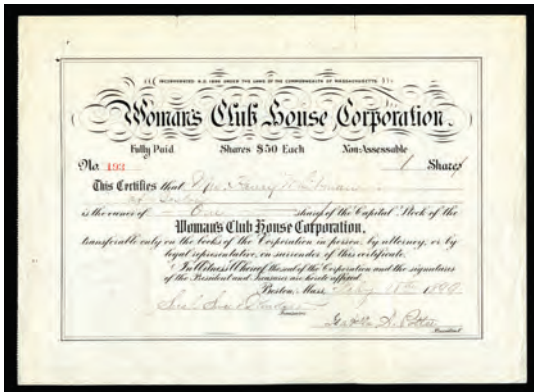 INCORPORATED A.D. UNDER THE LAWS OF THE COMMONWEALTH OF MASSACHUSETTS
Woman's Club House Corporation.
Fully Paid Shares $50 Each Non-Assessable
No. 193 1 Share
This Certifies that Mrs.
of
is the owner of One share of the Capital Stock of the
Woman's Club House Corporation,
transferable only on the books of the Corporation in person, by attorney, or by
legal representative, on surrender of this certificate.
In Witness Whereof the seal of the Corporation and the signatures
of the President and Treasurer are hereto affixed.
Boston, Mass. 1899
Treasurer
President